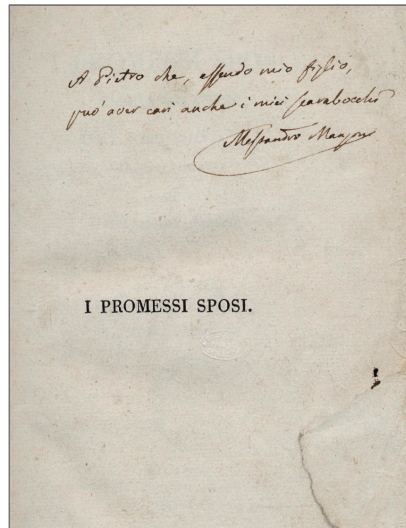 A Pietro che, essendo mio figlio,
può aver cari anche i miei scarabocchi
Alessandro Manzoni
I PROMESSI SPOSI.